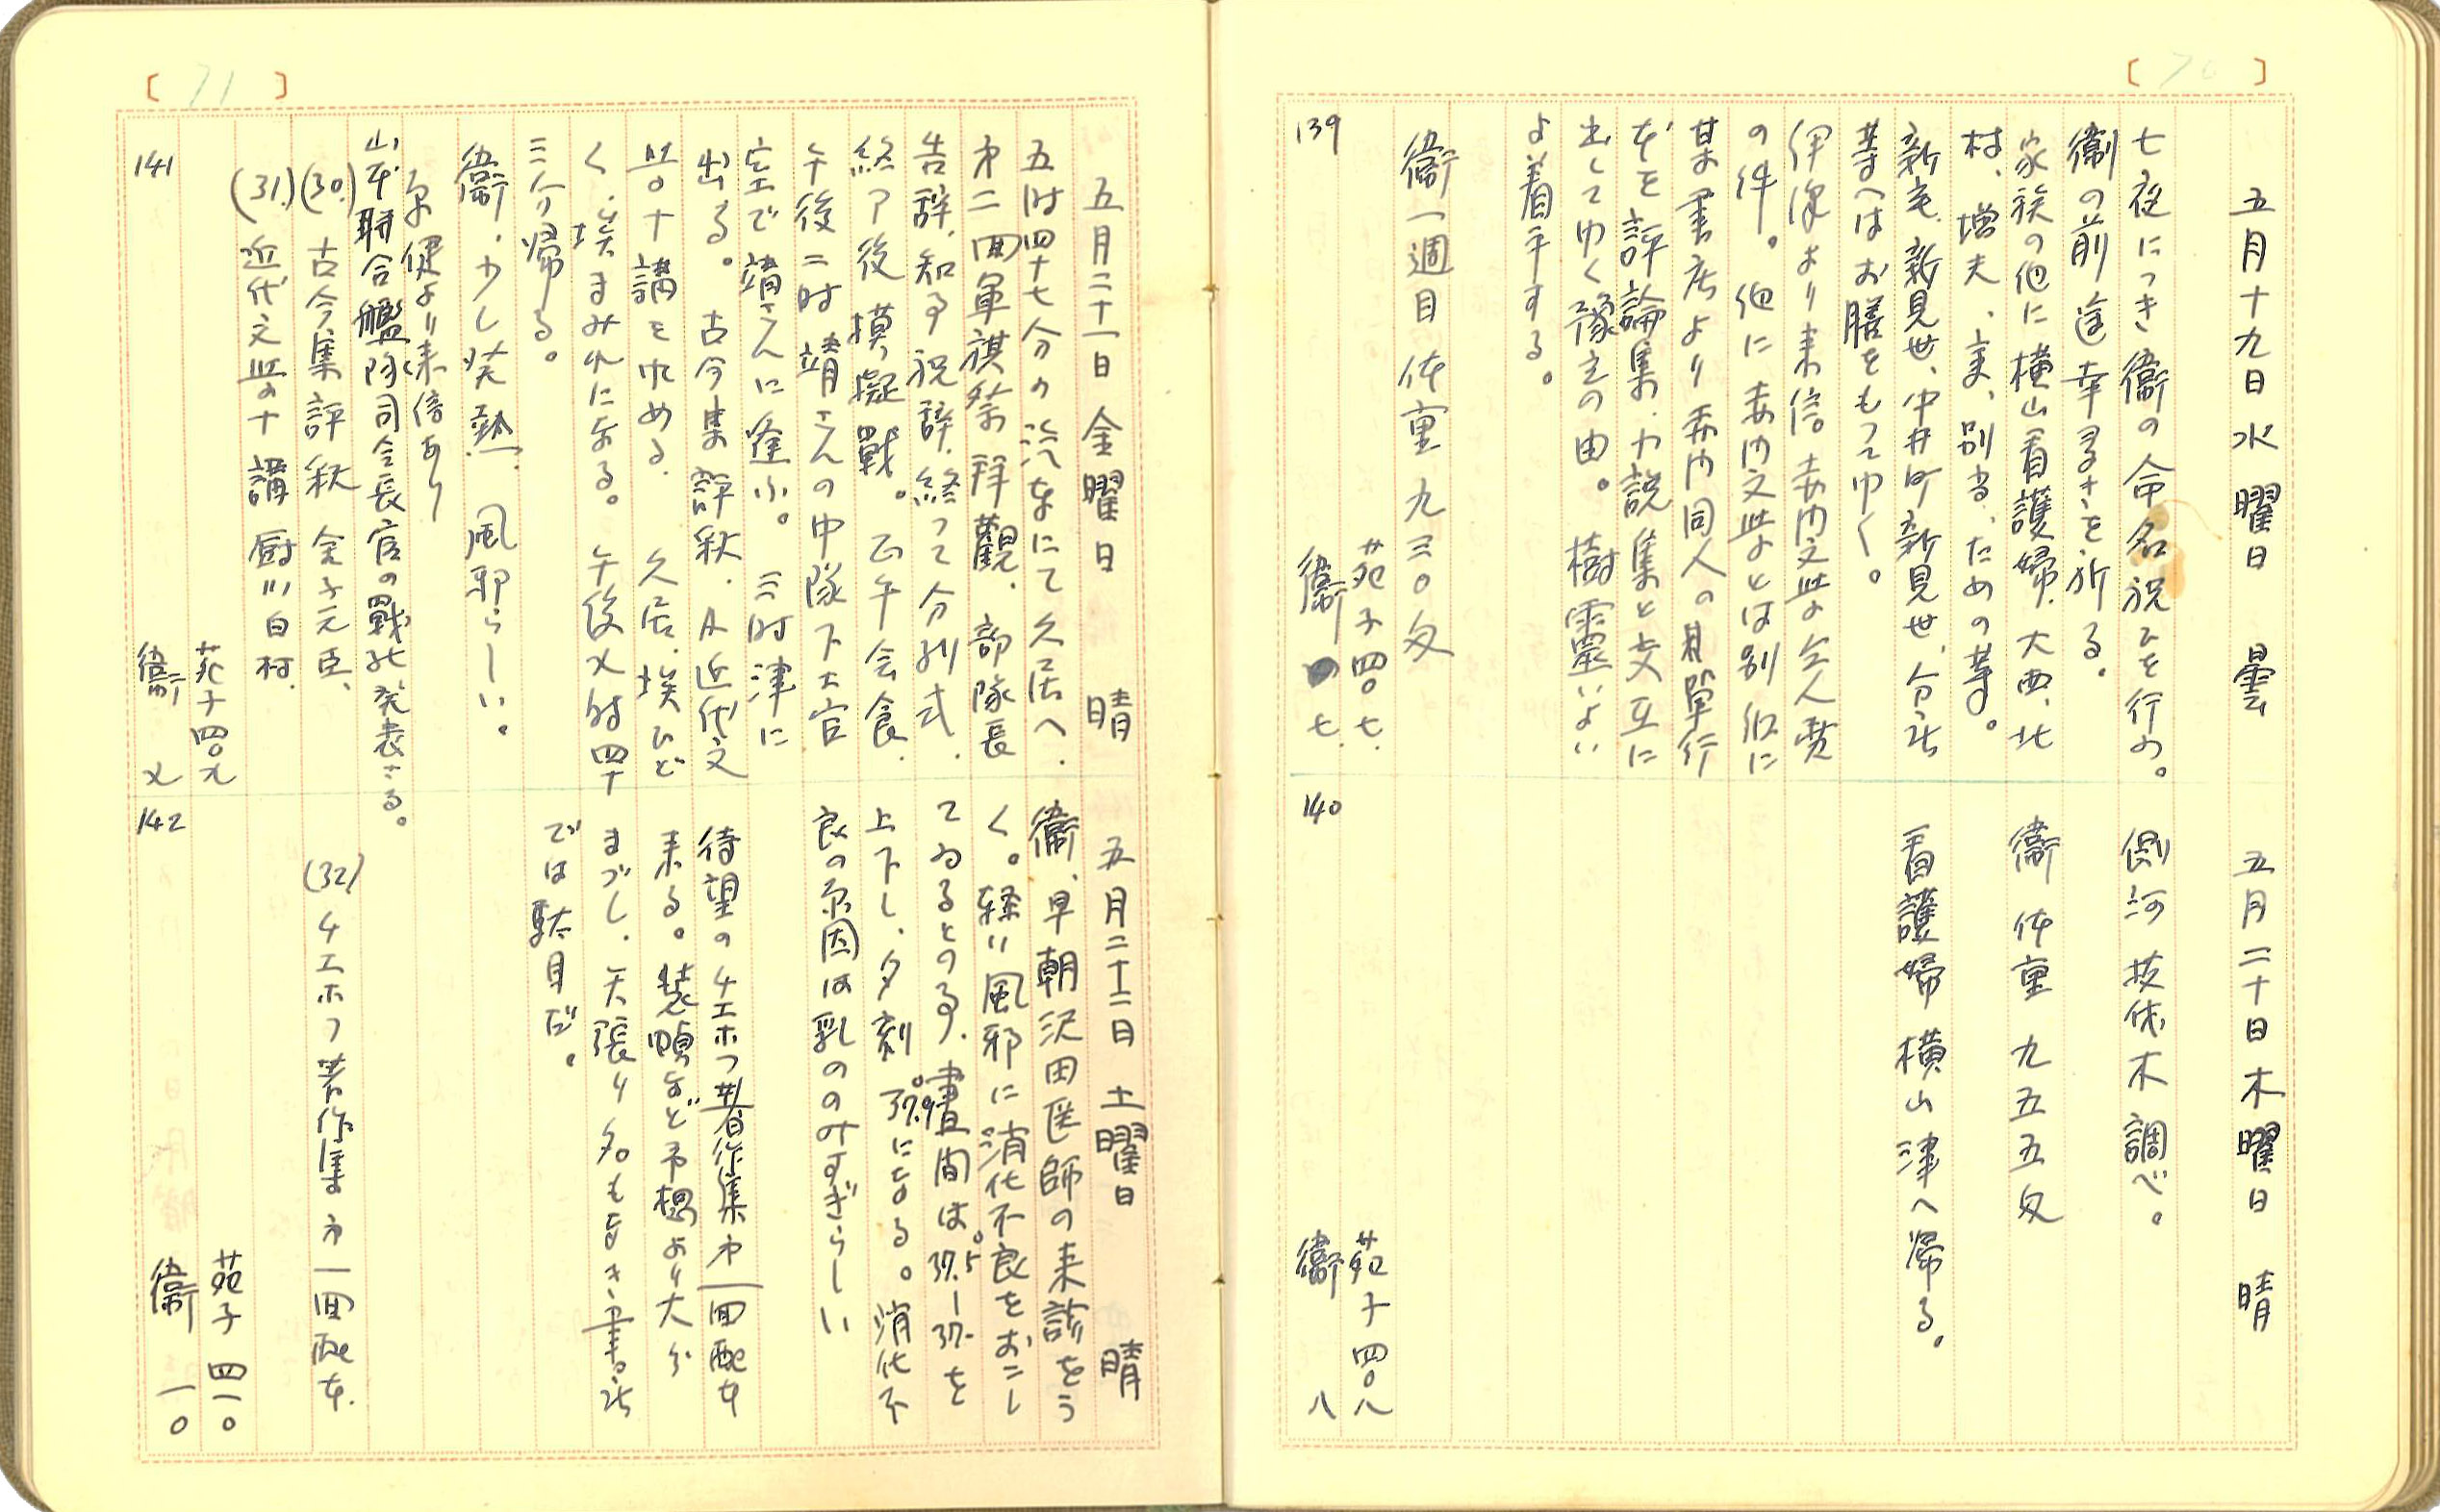 [70]
五月十九日 水曜日 曇
七夜につき衞の命名祝ひを行ふ。
衞の前途幸多きを祈る。
家族の他に横山看護婦、大西、北
村、増夫、実、別当、ための等。
新宅、新見世、中井町新見世、分家
等へはお膳をもつてゆく。
伊藤より来信 垂内文学会人費
の件。他に垂内文学とは別個に
某書店より垂内同人の単行
本を評論集、小説集と交互に
出してゆく予定の由。樹霊いよい
よ着手する。
衞一週目 体重 九三〇匁
苑子四〇七
衞 七
139
五月二十日 木曜日 晴
側河 抜伐木調べ。
衞 体重 九五五匁
看護婦 横山 津へ帰る。
苑子四〇八
衞 八
140
[71]
五月二十一日 金曜日 晴
五時四十七分の汽車にて久居へ、
第二回軍旗祭拝観、部隊長
告辞、知事祝辞、終つて分列式、
終了後 摸擬戰。正午会食、
午後二時 靖さんの中隊下士官
室で靖さんに逢ふ。三時津に
出る。古今集評釈、近代文
学十講を求める。久居、埃ひど
く、埃まみれになる。午後九時四十
三分帰る。
衞、少し発熱、風邪らしい。
原健より来信あり
山本聯合艦隊司令長官の戰死発表さる。
(30.) 古今集評釈 金子元臣、
(31.) 近代文学十講 厨川白村、
苑子四〇九
衞 九
141
五月二十二日 土曜日 晴
衞、早朝沢田医師の来診をう
く。軽い風邪に消化不良をおこし
てゐるとの事、晝間は37.5−37.を
上下し、夕刻 37.9になる。消化不
良の原因は乳ののみすぎらしい
待望のチエホフ著作集 第一回配本
来る。装幀など予想より大分
まづし、矢張り名もなき書店
では駄目だ。
(32) チエホフ著作集 第一回配本.
苑子 四一〇
衞 一〇
142